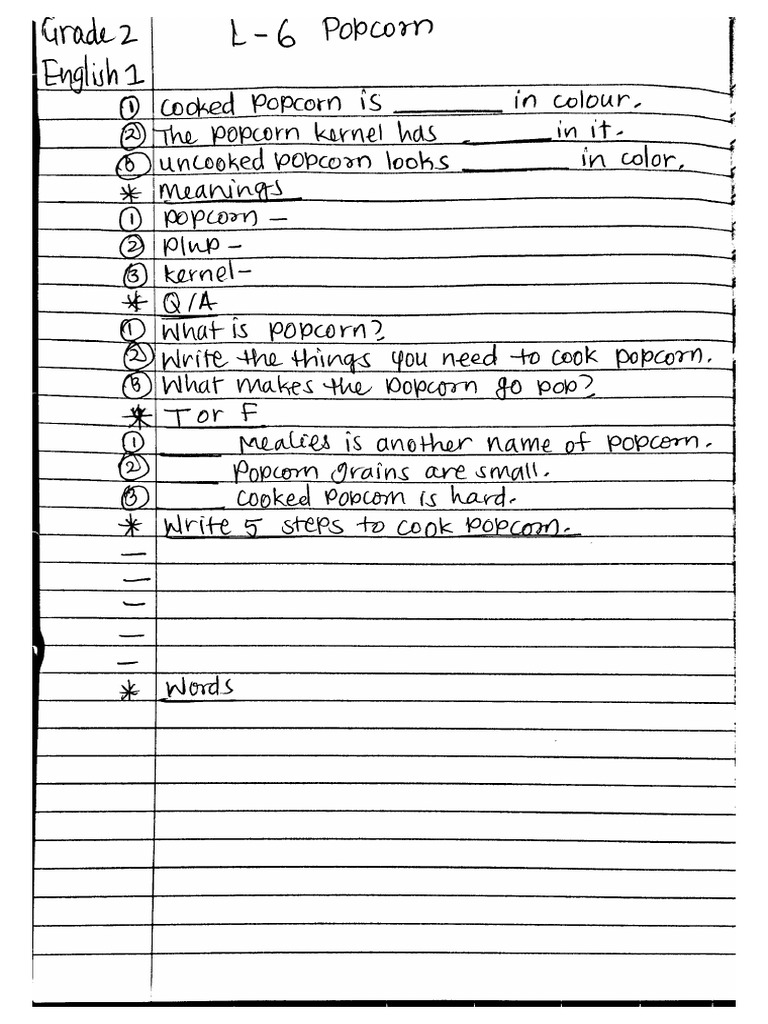 Grade 2 L-6 Popcorn
English 1
① Cooked popcorn is ______ in colour.
② The popcorn kernel has ______ in it.
③ uncooked popcorn looks ______ in color.
* Meanings
① popcorn –
② plup –
③ kernel –
* Q/A
① What is popcorn?
② Write the things you need to cook popcorn.
③ What makes the popcorn go pop?
* T or F
① ____ Mealies is another name of popcorn.
② ____ Popcorn grains are small.
③ ____ Cooked popcorn is hard.
* Write 5 steps to cook popcorn.
–
–
–
–
–
* Words